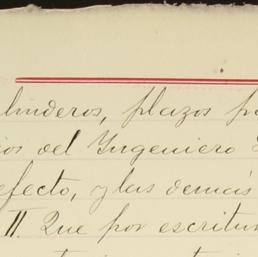 linderos, plazos pa
ios del Ingeniero
efecto, y las demás
II. Que por escritur